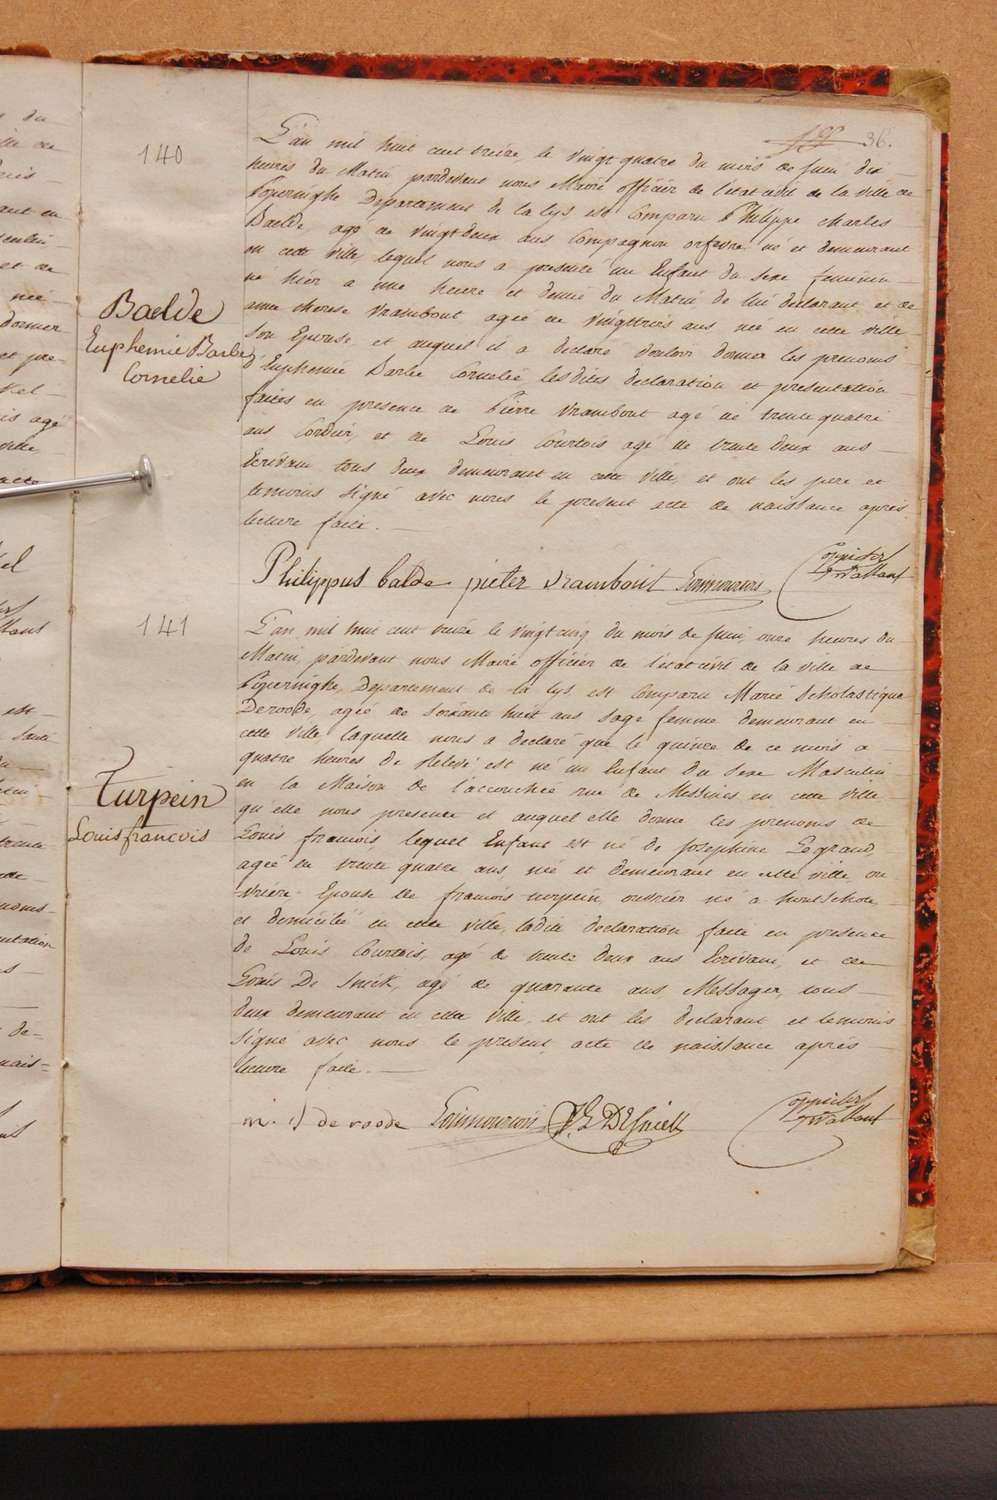 36.
140
Baelde
Euphemie Barbe
Cornelie
L'an mil huit cent treize, le vingt quatre du mois de Juin dix
heures du Matin pardevant nous Maire officier de l'etat civil de la ville de
Poperinghe Departement de la Lys est Comparu Philippe Charles
Baelde, agé de vingt deux ans Compagnon orfevre né et demeurant
en cette ville, lequel nous a presenté un Enfant du Sexe feminin
né hier a une heure et demie du Matin de lui declarant et de
anne therese Vrambout agée de vingttrois ans née en cette ville
Son Epouse et auquel il a declaré vouloir donner les prenoms
d'Euphemie Barbe Cornelie lesdites declaration et presentation
faites en presence de Pierre Vrambout agé de trente quatre
ans Cordier, et de Louis Courtois agé de trente deux ans
Ecrivain tous deux demeurant en cette ville, et ont les pere et
temoins signé avec nous le present acte de naissance après
lecture faite. —
Philippus balde pieter vrambout
141
Turpein
Louis francois
L'an mil huit cent treize le vingtcinq du mois de Juin, onze heures du
Matin, pardevant nous Maire officier de l'etat civil de la ville de
Poperinghe, Departement de la Lys est Comparu Marie Scholastique
Deroode, agée de soixante huit ans Sage femme demeurant en
cette ville laquelle nous a declaré que le quinze de ce mois a
quatre heures de relevé est né un Enfant du Sexe Masculin
en la Maison de l'accouchée rue de Messines en cette ville
qu'elle nous presente et auquel elle donne les prenoms de
Louis francois lequel Enfant est né de Josephine Legrand,
agée de trente quatre ans née et demeurant en cette ville, ou
vriere Epouse de francois turpein, ouvrier né a hontschote
et domicilié en cette ville, ladite declaration faite en presence
de Louis Courtois, agé de trente deux ans Ecrivain, et de
Louis De Snick, agé de quarante ans Messager, tous
deux demeurant en cette ville et ont les declarant et temoins
Signé avec nous le present acte de naissance après
lecture faite. —
m. S deroode DeSnick